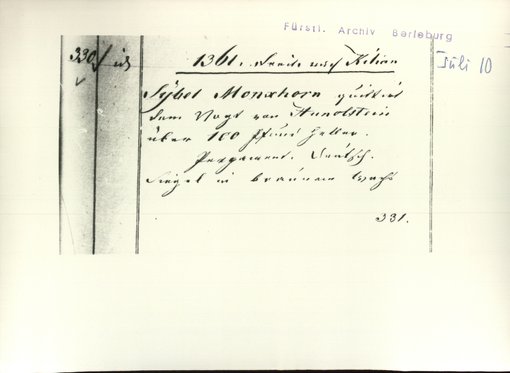 Fürstl. Archiv Berleburg
Juli 10
330.
1361. Freit. nach Kilian
Sybel Monxhorn quittirt
dem Vogt von Hunoltstein
über 100 Pfund Heller.
Pergament. Deutsch.
Siegel in braunem Wachs
331.